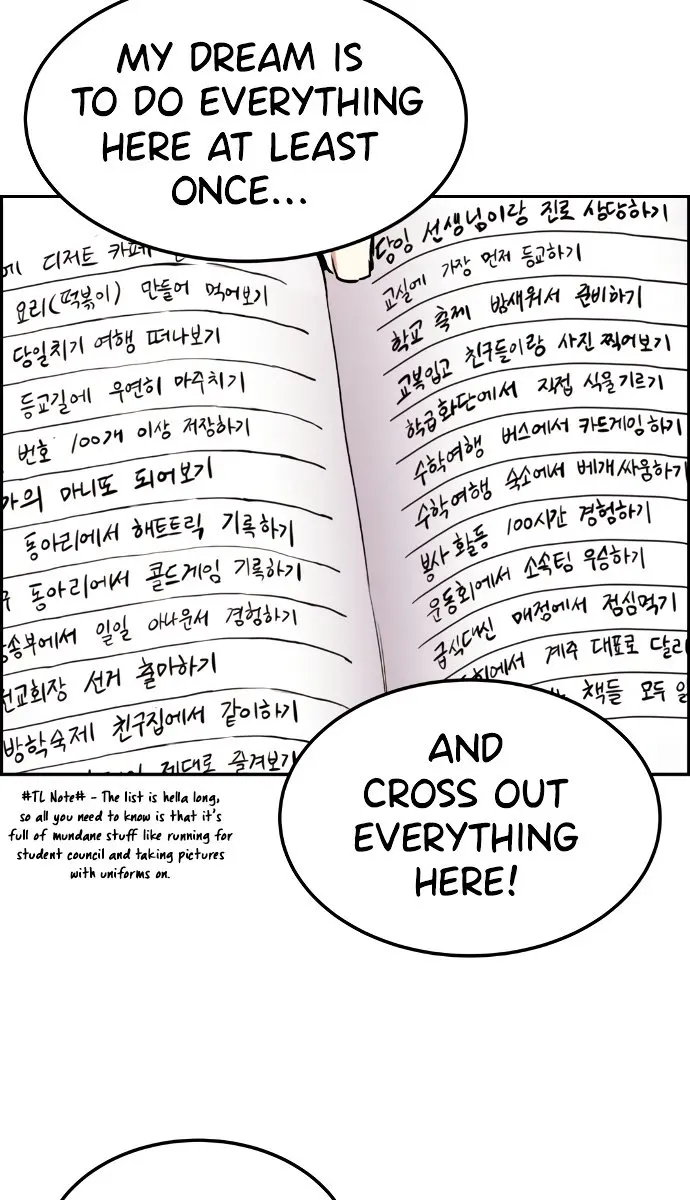 MY DREAM IS
TO DO EVERYTHING
HERE AT LEAST
ONCE...
에 디저트 카페
요리(떡볶이) 만들어 먹어보기
당일치기 여행 떠나보기
등교길에 우연히 마주치기
번호 100개 이상 저장하기
의 마니또 되어보기
동아리에서 해트트릭 기록하기
동아리에서 콜드게임 기록하기
송부에서 일일 아나운서 경험하기
전교회장 선거 출마하기
방학숙제 친구집에서 같이하기
제대로 즐겨보기
담임 선생님이랑 진로 상담하기
교실에 가장 먼저 등교하기
학교 축제 밤새워서 준비하기
교복입고 친구들이랑 사진 찍어보기
학급화단에서 직접 식물기르기
수학여행 버스에서 카드게임하기
수학여행 숙소에서 베개싸움하기
봉사 활동 100시간 경험하기
운동회에서 소속팀 우승하기
급식대신 매점에서 점심먹기
에서 계주 대표로 달리
책들 모두 읽
#TL Note# - The list is hella long,
so all you need to know is that it's
full of mundane stuff like running for
student council and taking pictures
with uniforms on.
AND
CROSS OUT
EVERYTHING
HERE!